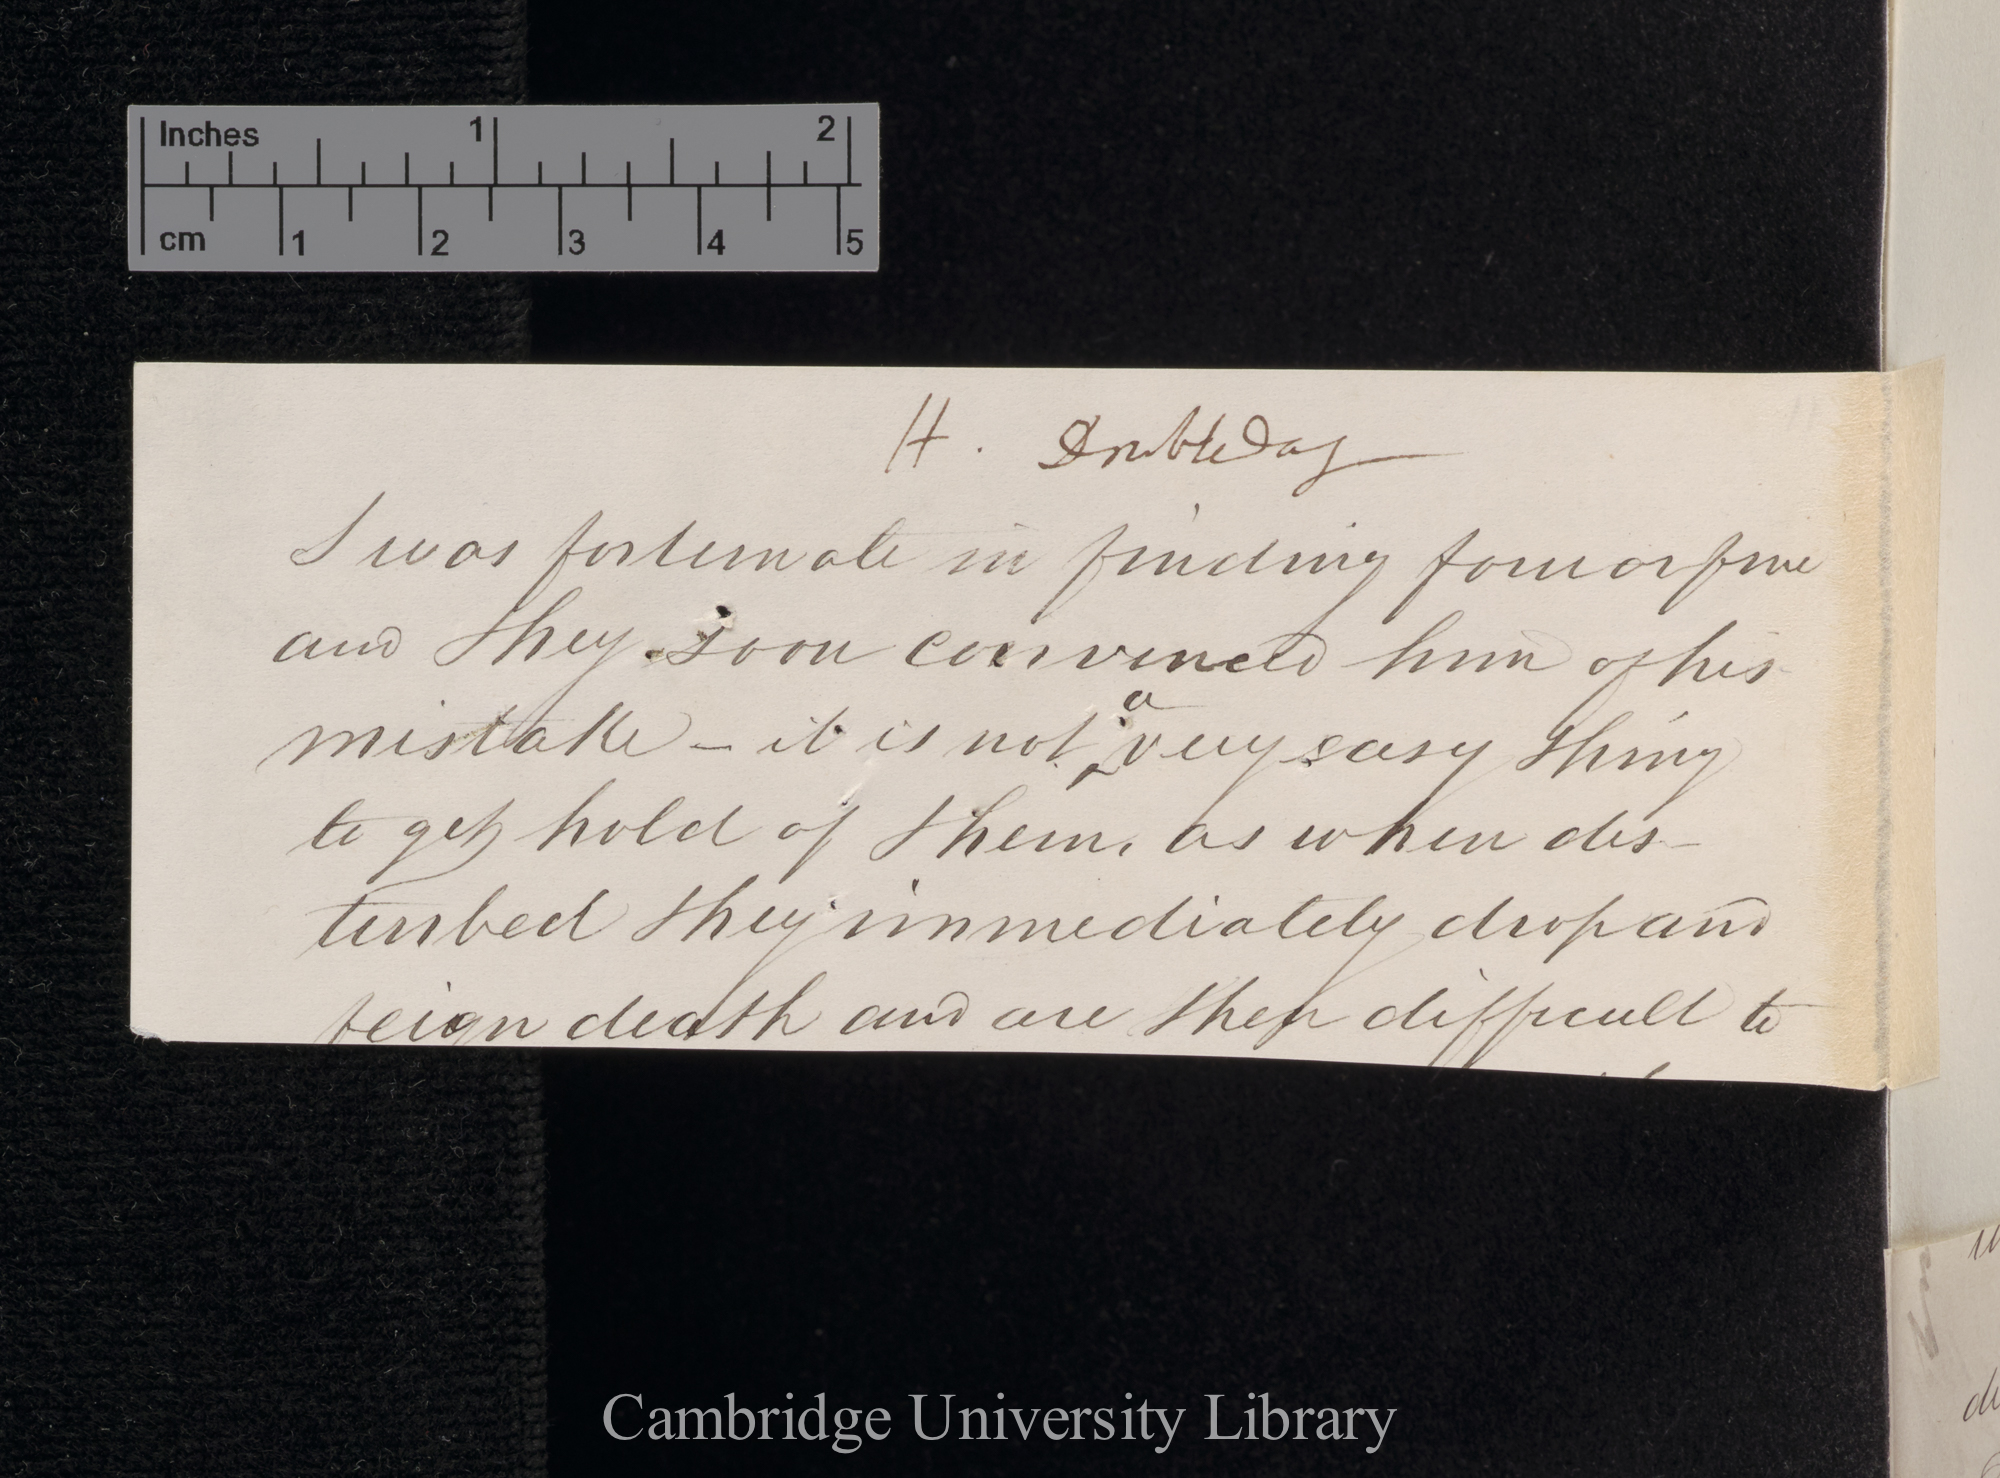 Inches 1 2
cm 1 2 3 4 5
H. Doubleday
I was fortunate in finding four or five
and they soon convinced him of his
a
mistake – it is not very easy thing
to get hold of them, as when dis-
turbed they immediately drop and
feign death and are then difficult to
Cambridge University Library